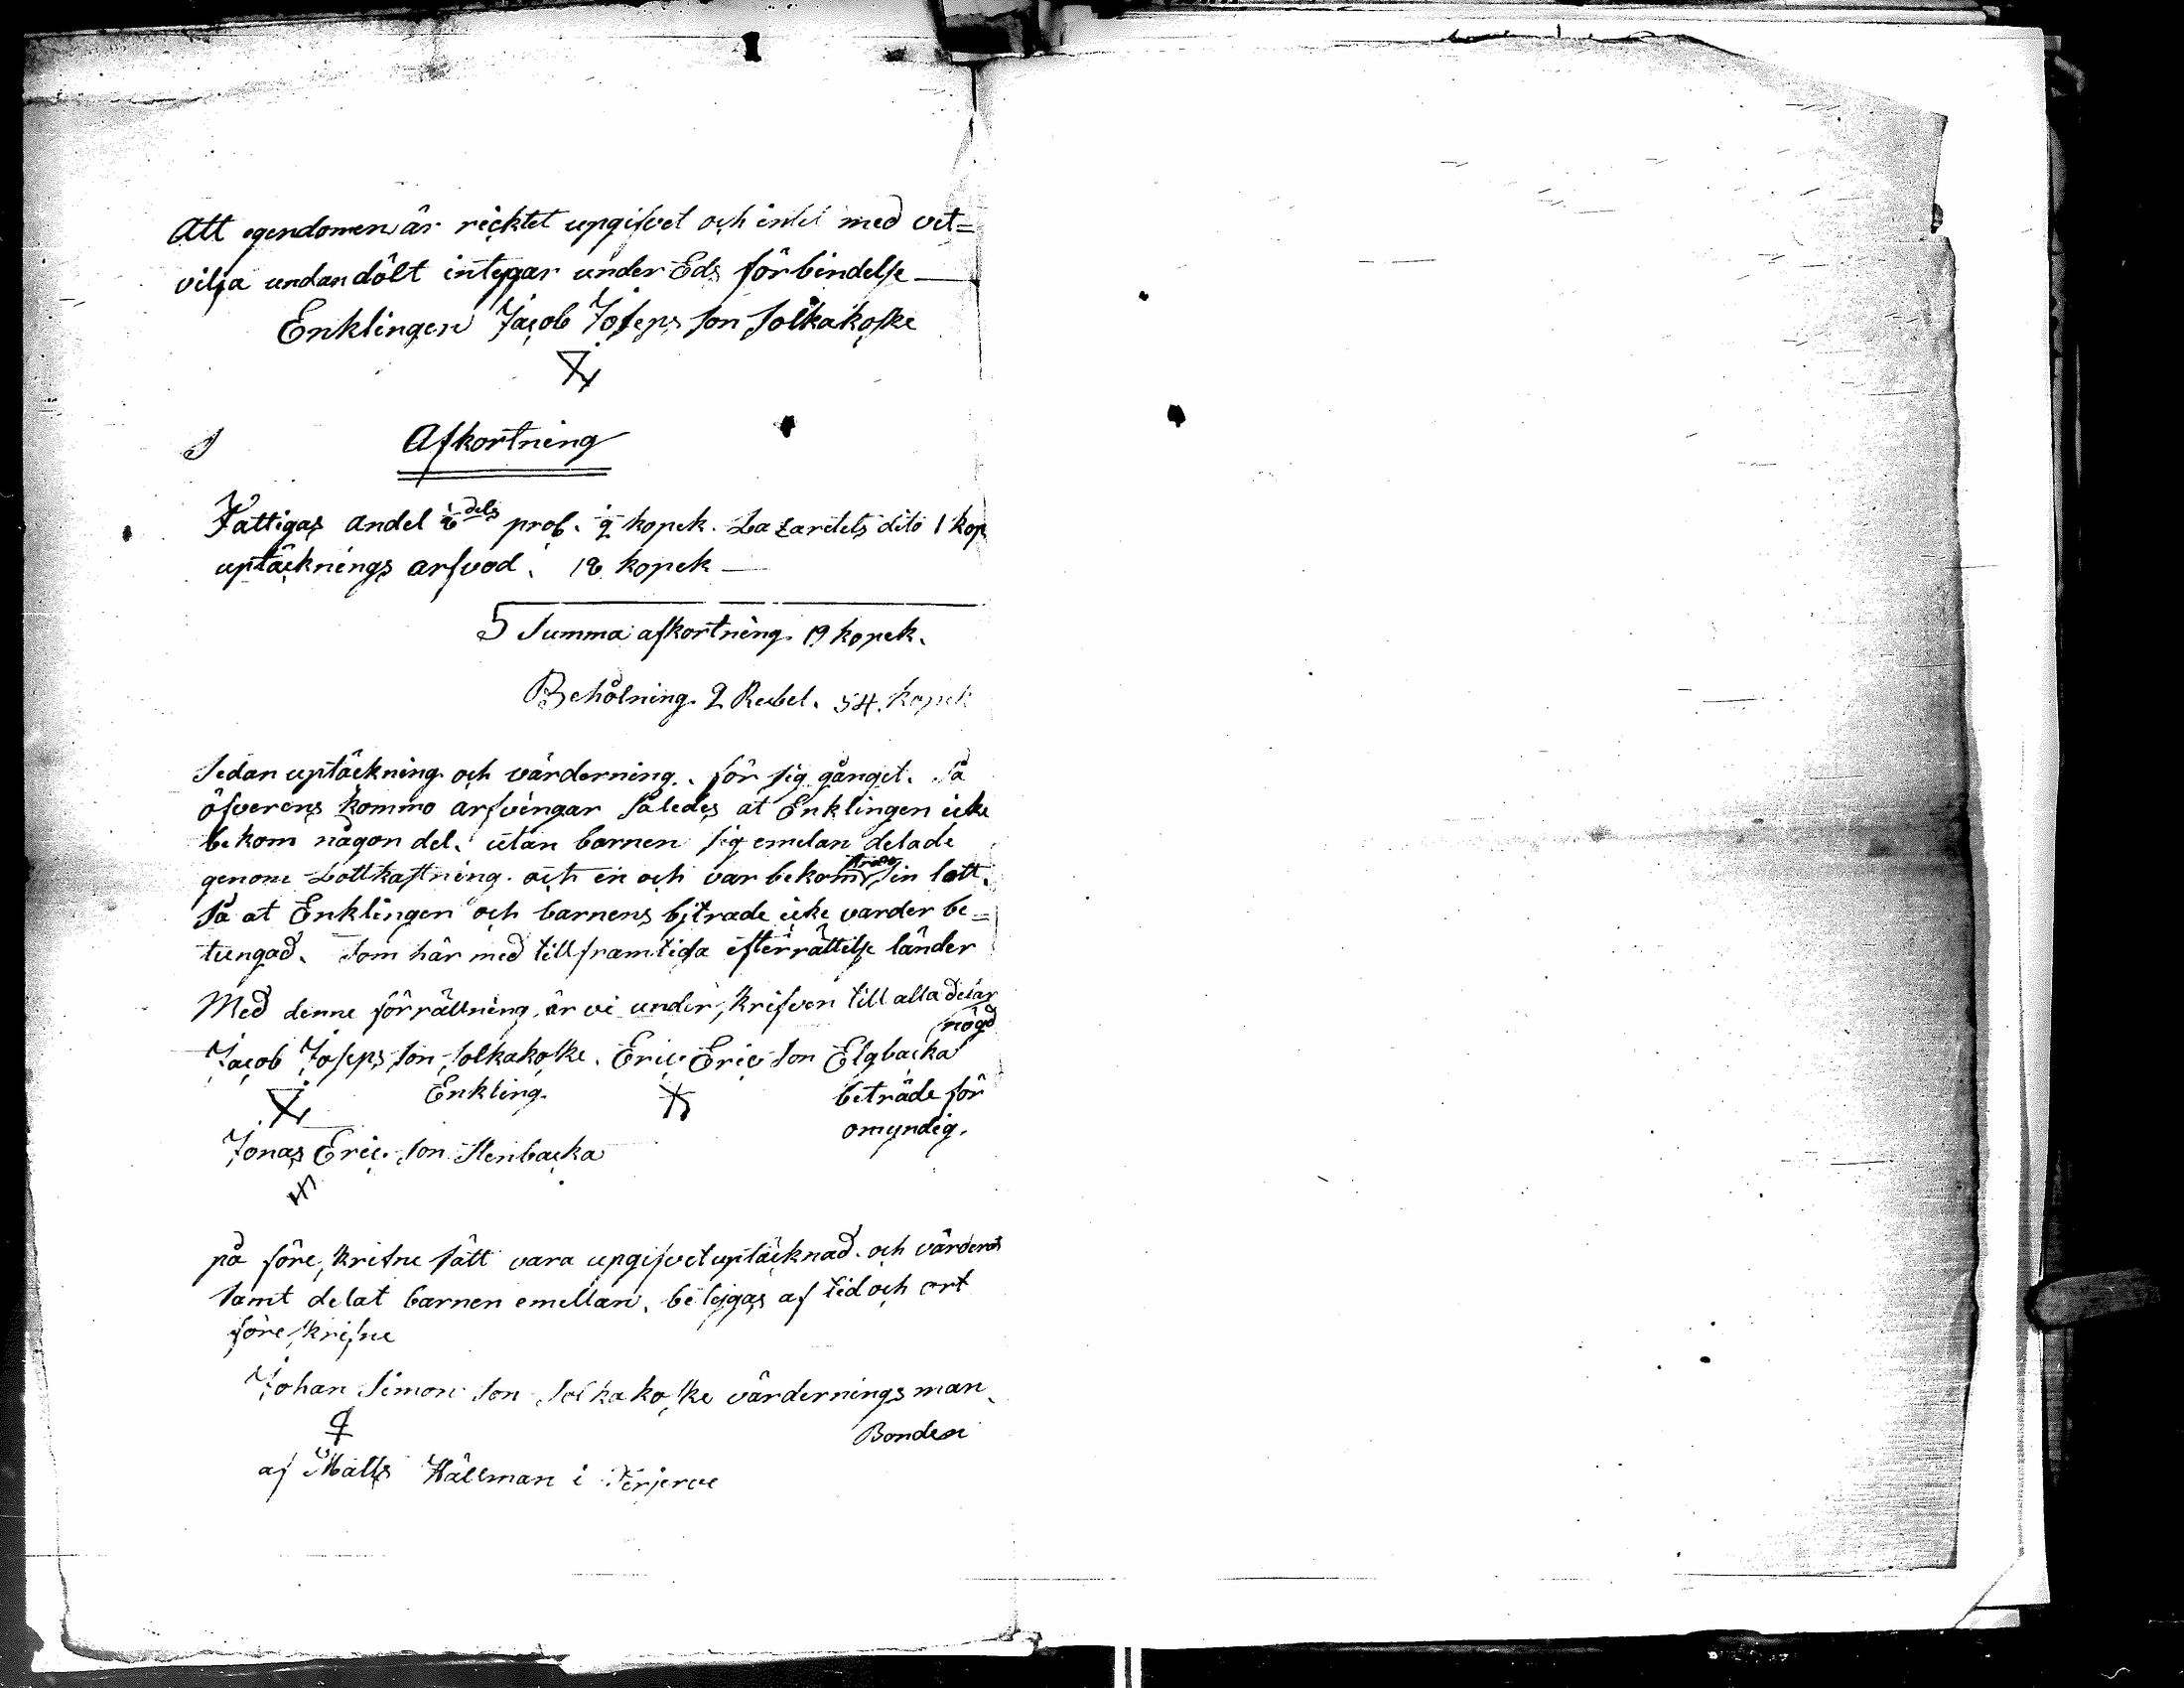 Att egendomen ärricktet upgifvet och intet med vet=
vilja undandölt intygar under Eds förbindelse
Enklingen Jacob Joseps son Solkakoske
Afkortning
Fattigas andel dels pros. 2 kopek. Lazaretets dito 1 kop
uptäcknings arfvod. 16 kopek
Summa afkortning. 19 kopek.
Beholning. 2 Rubel. 54. kopek
Sedan uptäckning och värderning. för sig gånget. Så
öfverens kommo arfvingar Således at Enklingen icke
bekom någon del. utan barnen sig emelan delade
genom Lottkastning. och en och var bekom sin lott.
Så at Enklingen och barnens bjträde icke varder be=
tungad. Som här med till framtida efterrättelse länder
Med denne förrättning är vi underskrifven till alla delar
nögd
Jacob Joseps son Solkakoske. Eric Eric son Elgbacka
Enkling. beträde för
omyndig.
Jonas Eric son Stenbacka
på föreskrifne sätt vara upgifvet uptäcknad. och värderat
samt delat barnen emellan. betygas af tid och ort
föreskrifne
Johan Simon son Solkakoske värdernings man.
Bonden
af Matts Hällman i Terjerve